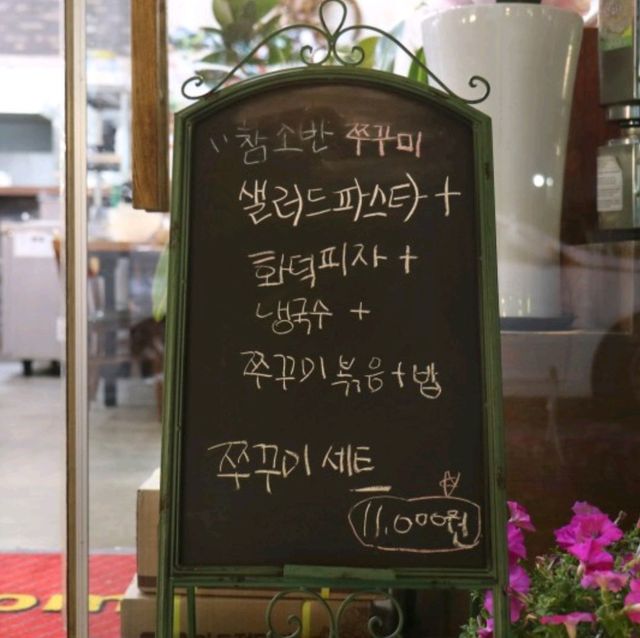 "참소반 쭈꾸미
샐러드파스타+
화덕피자+
냉국수 +
쭈꾸미볶음+밥
쭈꾸미 세트
11,000원
om